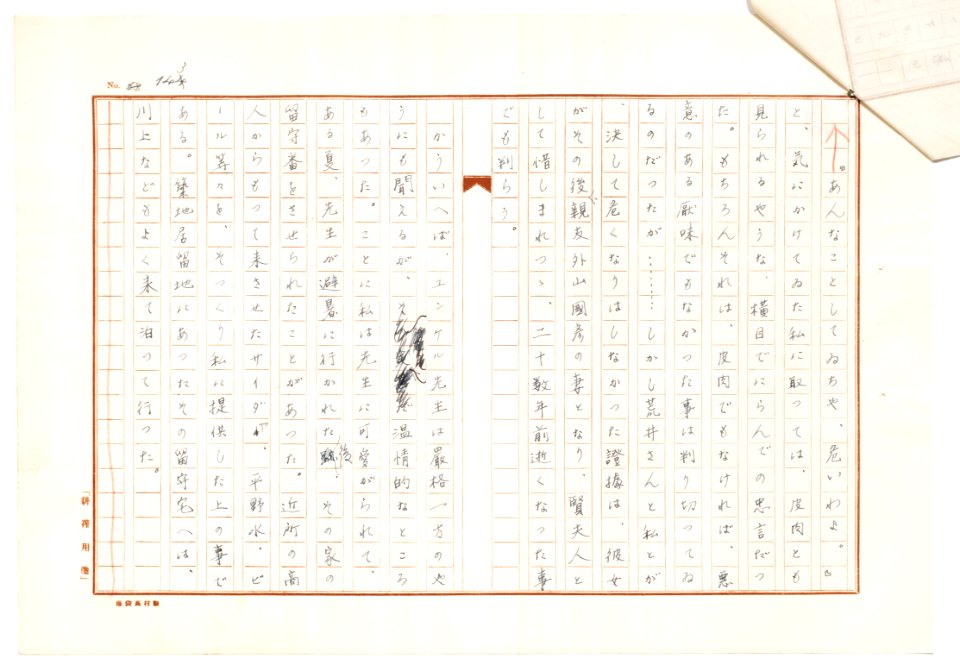 No.
「あんなことしてゐちや、危いわよ。」
と、気にかけてゐた私に取つては、皮肉とも
見られるやうな、横目でにらんでの忠言だつ
た。もちろんそれは、皮肉でもなければ、悪
意のある厭味でもなかつた事は判り切つてゐ
るのだつたが………しかし荒井さんと私とが
、決して危くなりはしなかつた證據は、彼女
がその後親友外山國彦の妻となり、賢夫人と
して惜しまれつゝ、二十数年前逝くなつた事
でも判らう。
かういへば、ユンケル先生は嚴格一方のや
うにも聞えるが、温情的なところ
もあつた。ことに私は先生に可愛がられて、
ある夏、先生が避暑に行かれた後、その家の
留守番をさせられたことがあつた。近所の商
人からもつて来させたサイダー、平野水、ビ
ール等々を、そつくり私に提供した上の事で
ある。築地居留地にあつたその留守宅へは、
川上などもよく来て泊つて行つた。
用箋」